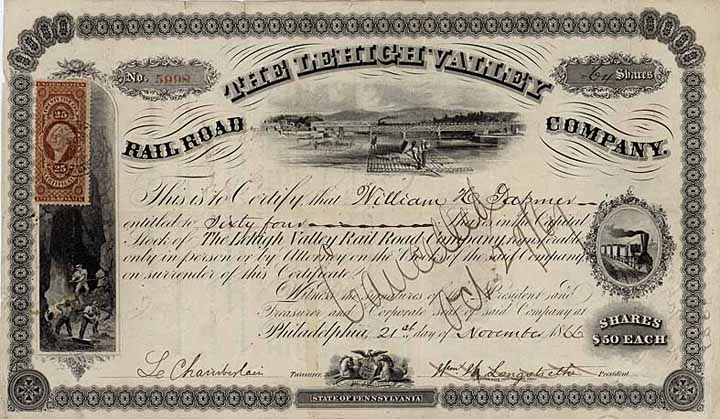 No. 5998
64 Shares
THE LEHIGH VALLEY
RAIL ROAD COMPANY.
25
25
This is to Certify that William H.
entitled to Sixty four Shares in the Capital
Stock of The Lehigh Valley Rail Road Company transferable
only in person or by Attorney on the Books of the said Company
on surrender of this Certificate.
Witness the Signatures of the President and
Treasurer and Corporate Seal of said Company at
Philadelphia, 21st day of November 1866
Cancelled
Oct
SHARES
$50 EACH
L Chamberlain Treasurer
Wm W Longstreth President
STATE OF PENNSYLVANIA